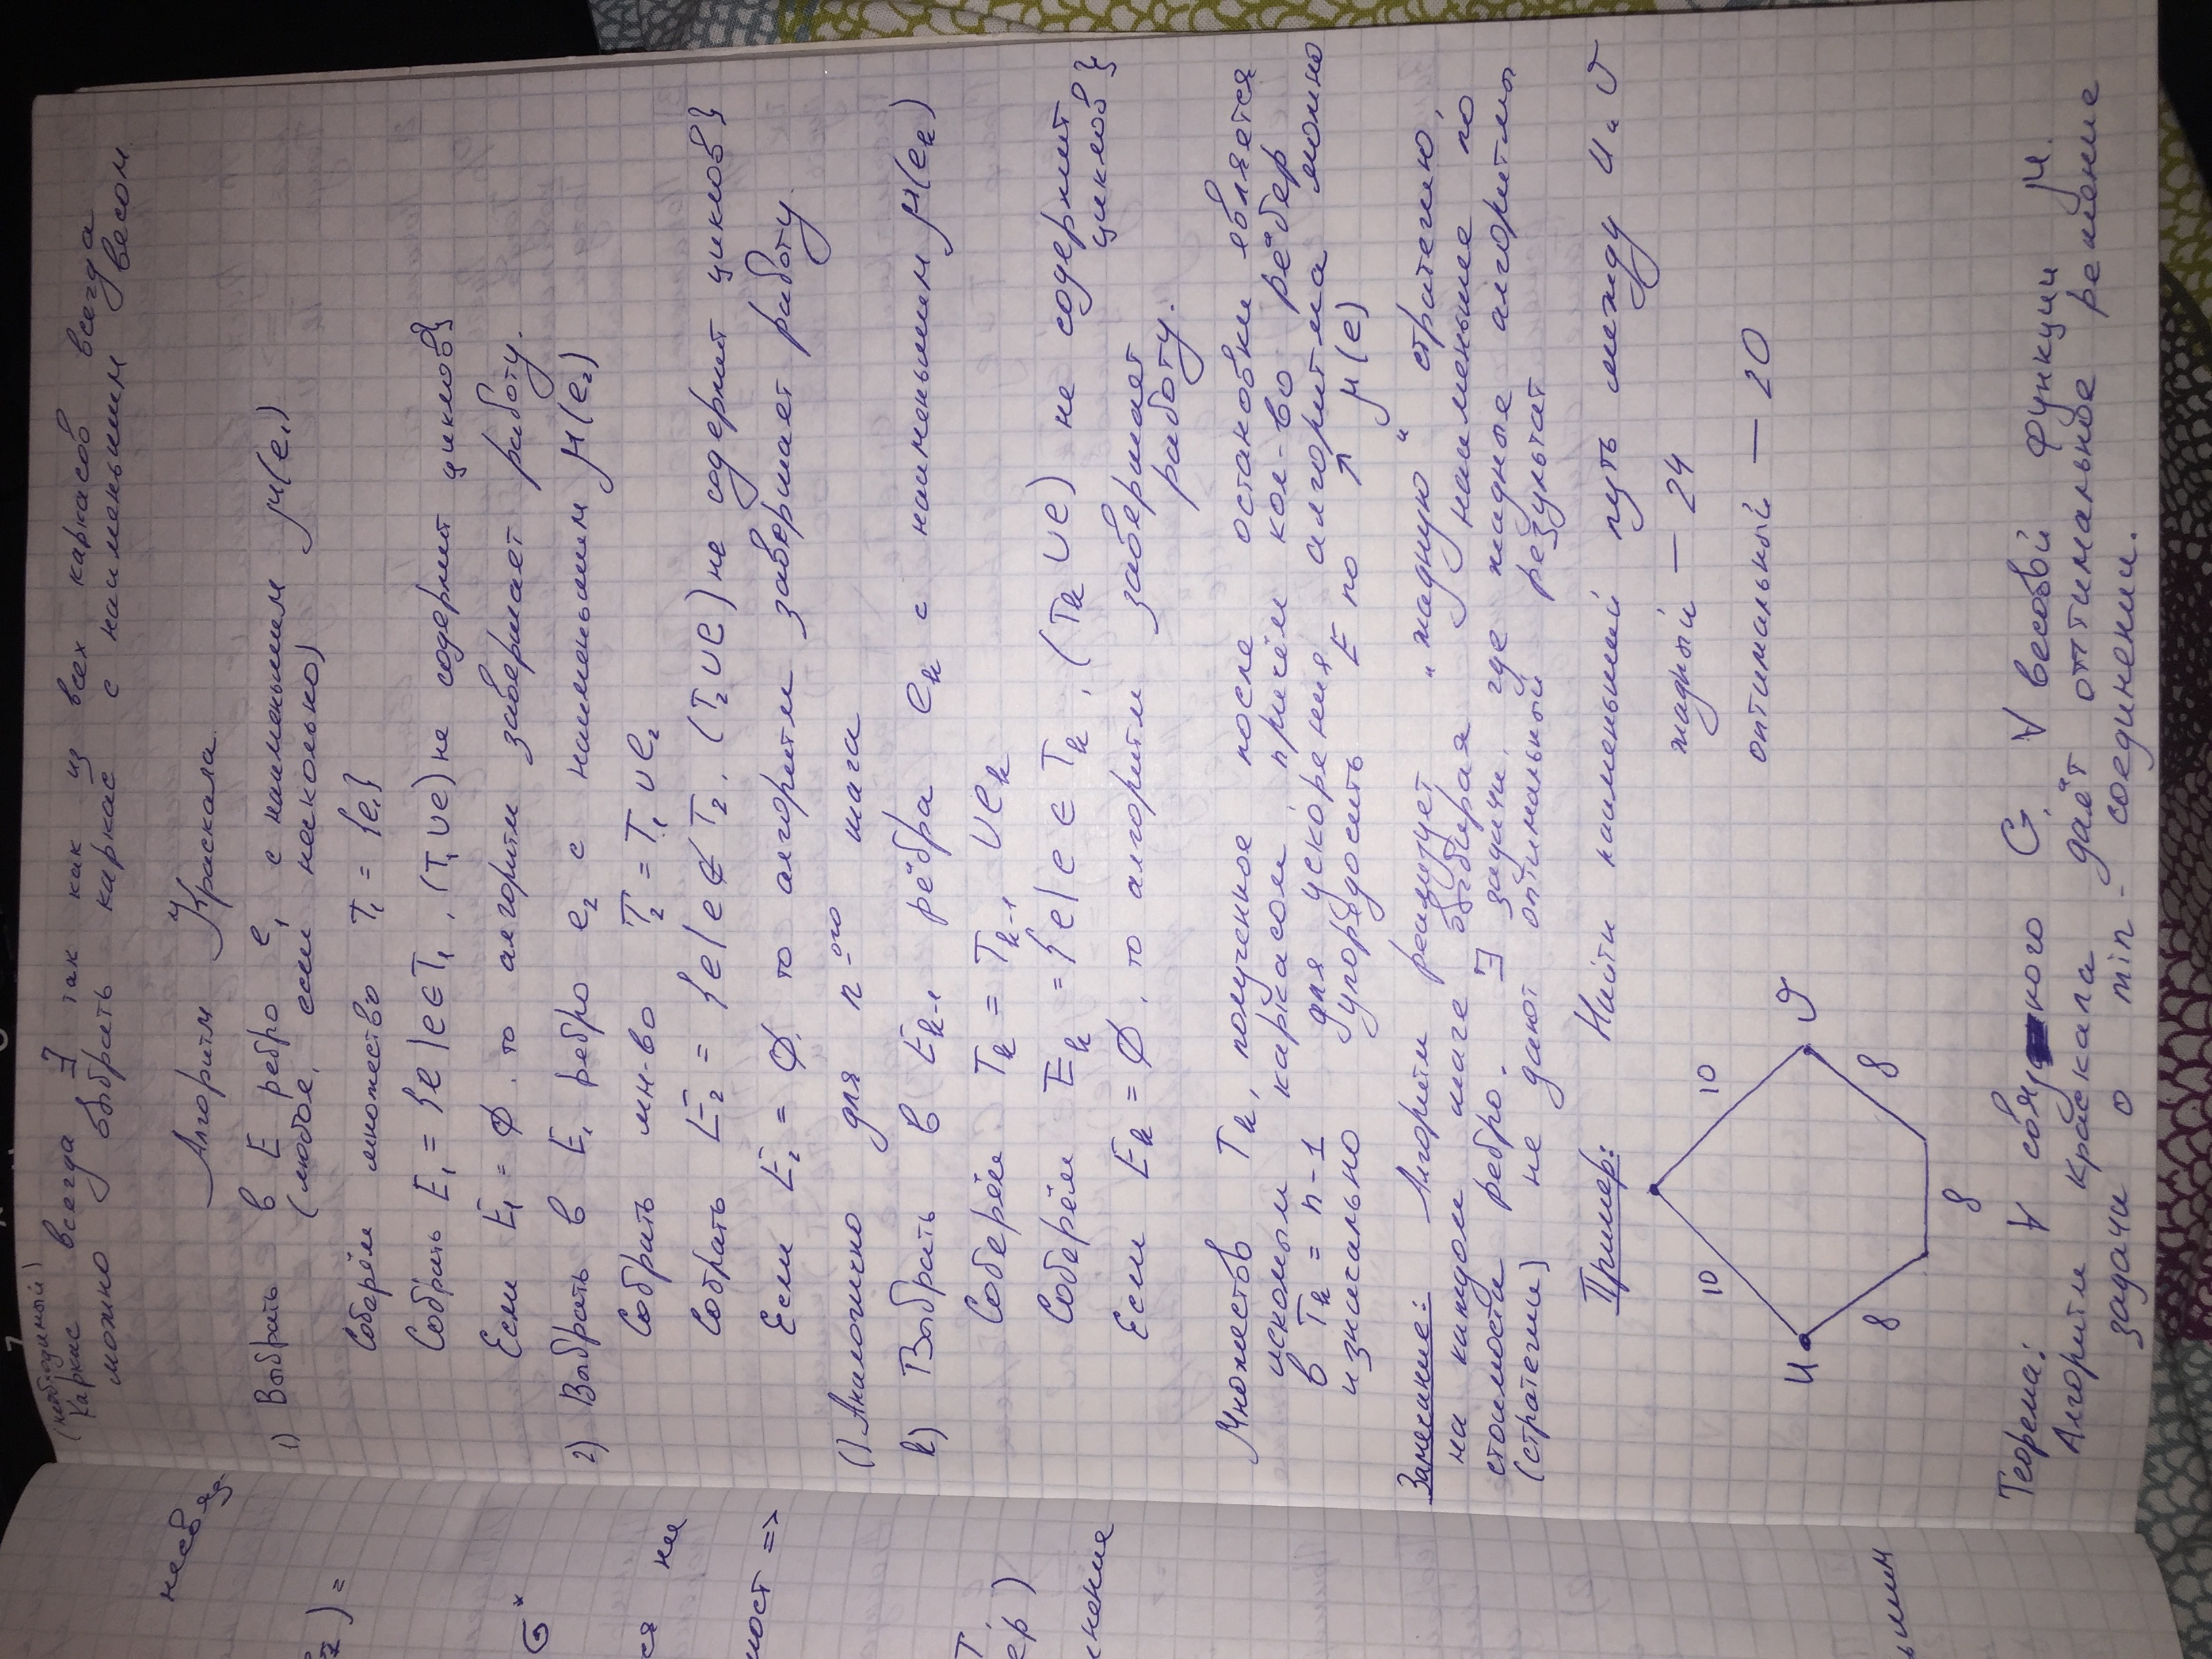 (необходимый)
Каркас всегда ∃ так как из всех каркасов всегда
можно выбрать каркас с наименьшим весом.
Алгоритм Краскала.
1) Выбрать в E ребро e₁ с наименьшим μ(e₁)
(любое, если несколько)
Соберём множество T₁ = {e₁}
Собрать E₁ = {e | e ∈ T₁, (T₁ ∪ e) не содержит циклов}
Если E₁ = ∅, то алгоритм завершает работу.
2) Выбрать в E₁ ребро e₂ с наименьшим μ(e₂)
Собрать мн-во T₂ = T₁ ∪ e₂
Собрать E₂ = {e | e ∉ T₂, (T₂ ∪ e) не содержит циклов}
Если E₂ = ∅, то алгоритм завершает работу.
Аналогично для n-ого шага
k) Выбрать в Eₖ₋₁ рёбра eₖ с наименьшим μ(eₖ)
Соберём Tₖ = Tₖ₋₁ ∪ eₖ
Соберём Eₖ = {e | e ∈ Tₖ, (Tₖ ∪ e) не содержит
циклов}
Если Eₖ = ∅, то алгоритм завершает
работу.
Множеств Tₖ, полученное после остановки является
искомым каркасом, причём кол-во рёбер
в Tₖ = n-1 для ускорения алгоритма можно
изначально упорядочить E по ↑ μ(e)
Замечание: Алгоритм реализует „жадную“ стратегию,
на каждом шаге выбирая наименьшее по
стоимости ребро. ∃ задачи, где жадные алгоритмы
(стратегии) не дают оптимальный результат
Пример: Найти наименьший путь между u и v
жадный — 24
10 10
оптимальный — 20
u v
8 8
8
Теорема: ∀ связного G, ∀ весовой функции μ.
Алгоритм Краскала даёт оптимальное решение
задачи о min - соединении.
несвяз
) =
σ*
ся ни
мост =>
T,
ер)
нение
ьшим